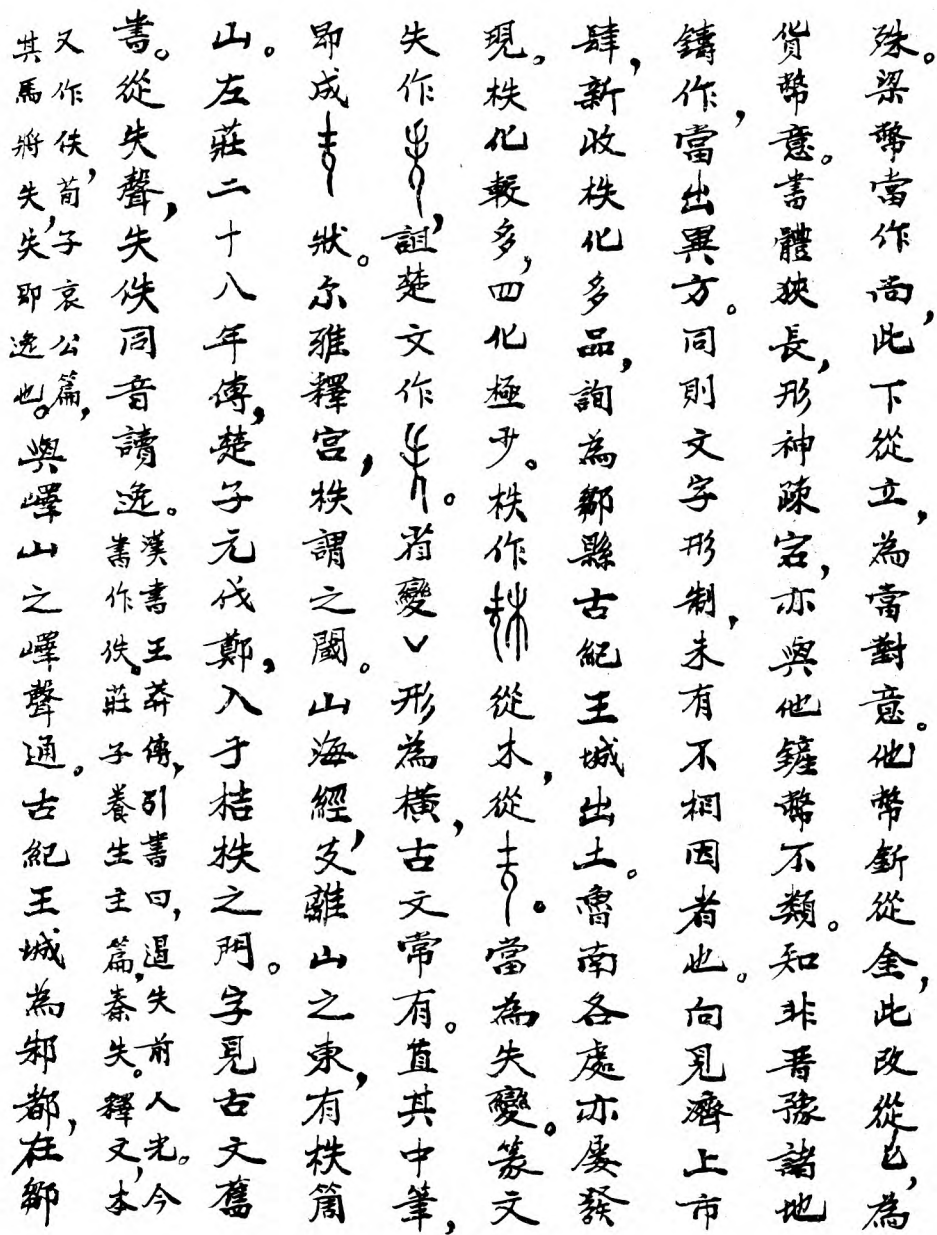 殊。梁幣當作尚，此下從立，為當對意。他幣釿從金，此改從，為
貨幣意。書體狹長，形神疎宕，亦與他鏟幣不類。知非晋豫諸地
鑄作，當出異方。同則文字形制，未有不相因者也。向見濟上市
肆，新收栨化多品，詢為鄒縣古紀王城出土。魯南各處亦屡發
現。枎化較多，四化極少。枎作從木，從。當為失變。篆文
失作，詛楚文作。省變∨形為橫，古文常有。直其中筆，
即成狀。尔雅釋宫，柣謂之閾。山海經，支離山之東，有柣筩
山。左莊二十八年傳，楚子元伐鄭，入于桔柣之門。字見古文舊
書。從失聲，失佚同音讀逸。漢書王莽傳，引書曰，遏失前人光。今
書作佚。莊子養生主篇，秦失。釋文，本
又作佚，荀子哀公篇，
其馬將失，失即逸也。與嶧山之嶧聲通。古紀王城為邾都，在鄒